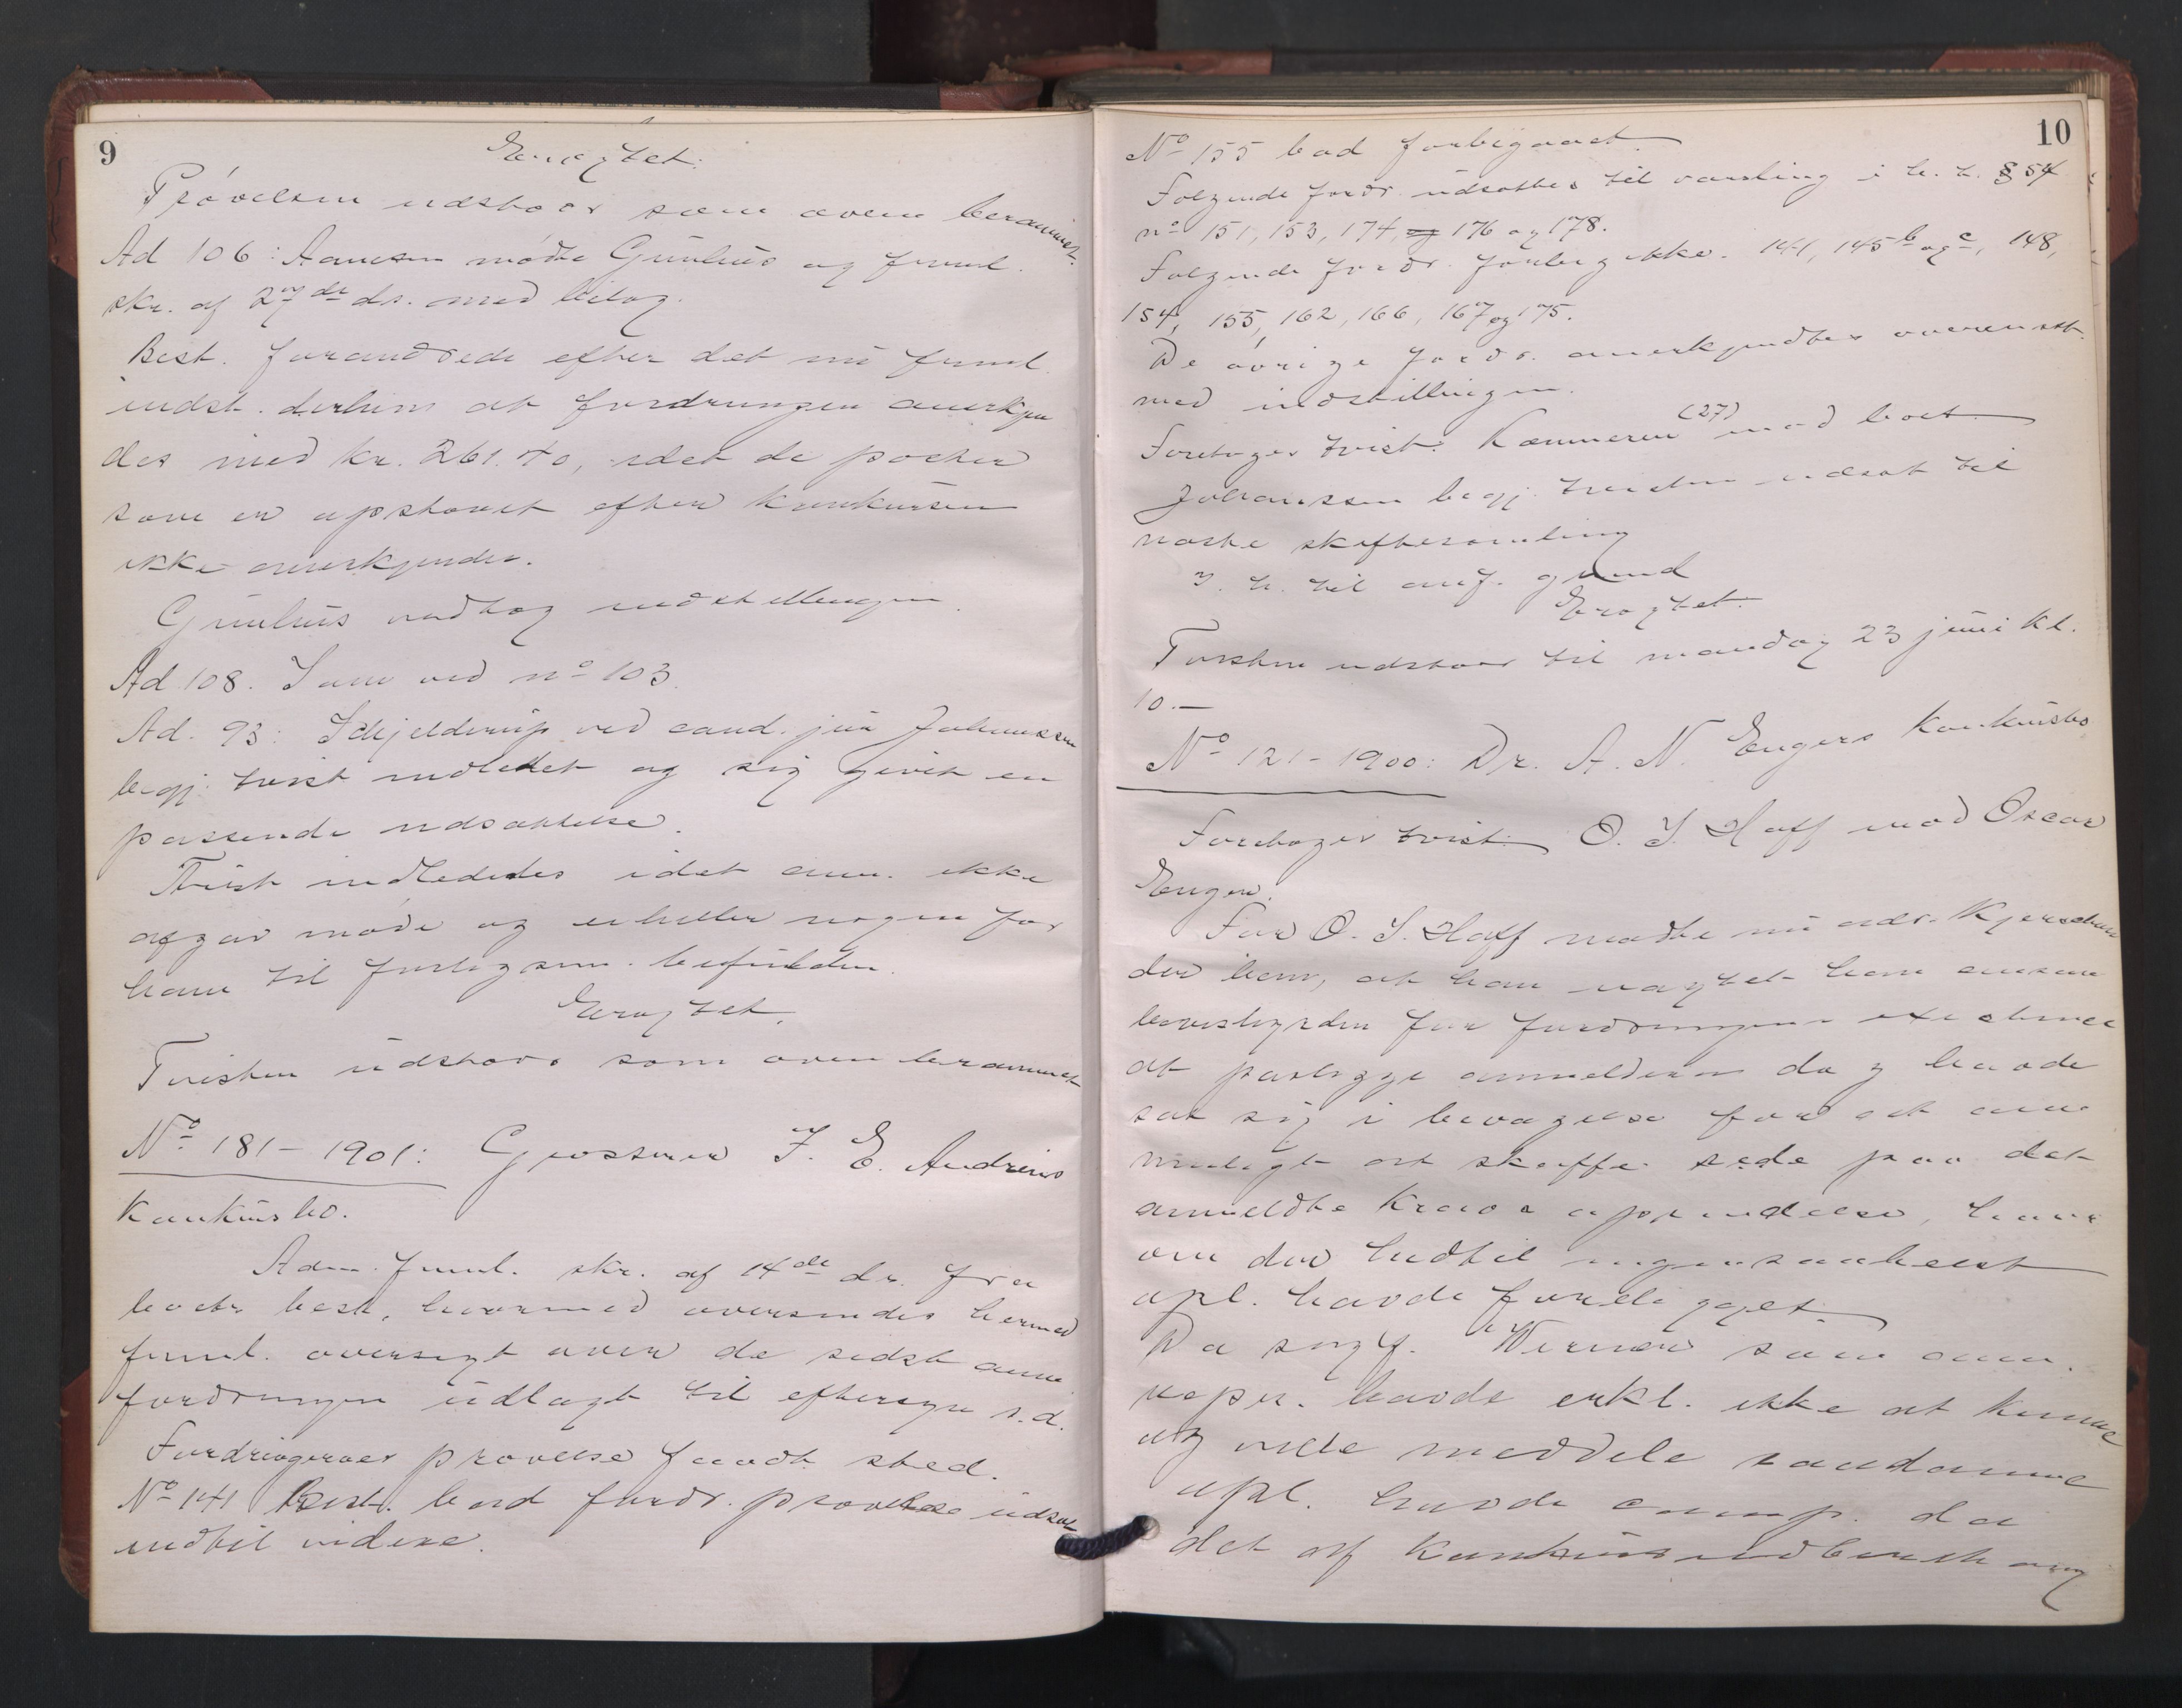 9
Eragtet:
Prøvelsen udstaar som oven berammet.
Ad 106: Aanesen mødte Gunlius og freml.
skr. af 27de ds. med bilag.
Best. forandrede efter det nu freml.
indst. derhen at fordringen anerkjen
des med kr. 261.40, idet de poster
som er opstaaet efter konkursen
ikke anerkjendes.
Gunlius vedtog indstillingen.
Ad 108. Som ved no 103.
Ad. 93: Schjelderup ved cand. jur Johanssen
begj. tvist indledet og sig givet en
passende udsættelse.
Tvist indlededes idet anm. ikke
afgav møde og eiheller nogen for
ham til forligsm. befuldm.
Eragtet.
Tvisten udstaar som oven berammet
No 181-1901: Grosserer F. E. Andrews
Konkursbo.
Adm. freml. skr. af 14de ds. fra
boets best. hvormed oversendes hermed
freml. oversigt over de sidst anm.
fordringer udlagt til eftersyn s.d.
Fordringernes prøvelse fandt sted.
No 141 Best. bad fordr. prøvelse udsat
indtil videre.
10
No 155 bad forbigaaet.
Følgende fordr. udsattes til varsling i h. t. § 54
no 151, 153, 174, og 176 og 178.
Følgende fordr. forelig ikke. 141, 145 b og c, 148,
154, 155, 162, 166, 167 og 175.
De øvrige fordr. anerkjendtes overensst.
med indstillingen.
Foretoges tvist: Kæmneren (27) mod boet.
Johanssen begj. tvisten udsat til
næste skiftesamling
I. h. til anf. grund
Eragtet:
Tvisten udstaar til mandag 23 juni kl.
10.-
No 121-1900: Dr. A. N. Engers Konkursbo
Foretoges tvist: O. J. Hoff mod Oscar
Enger.
For O. J. Hoff mødte nu adv. Kjerschow
der bem, at han uagtet han ansaa
bevisbyrden for fordringens existence
at paaligge anmelderen dog havde
sat sig i bevægelse for et om
muligt at skaffe rede paa det
anmeldte kravs oprindelse, hvor
om der indtil ingensomhelst
opl. havde foreligget.
Da sagf. Werner som anm.
repr. havde erkl. ikke at kunne
og ville meddele saadanne
opl. havde comp. da
det af konkursindberetning